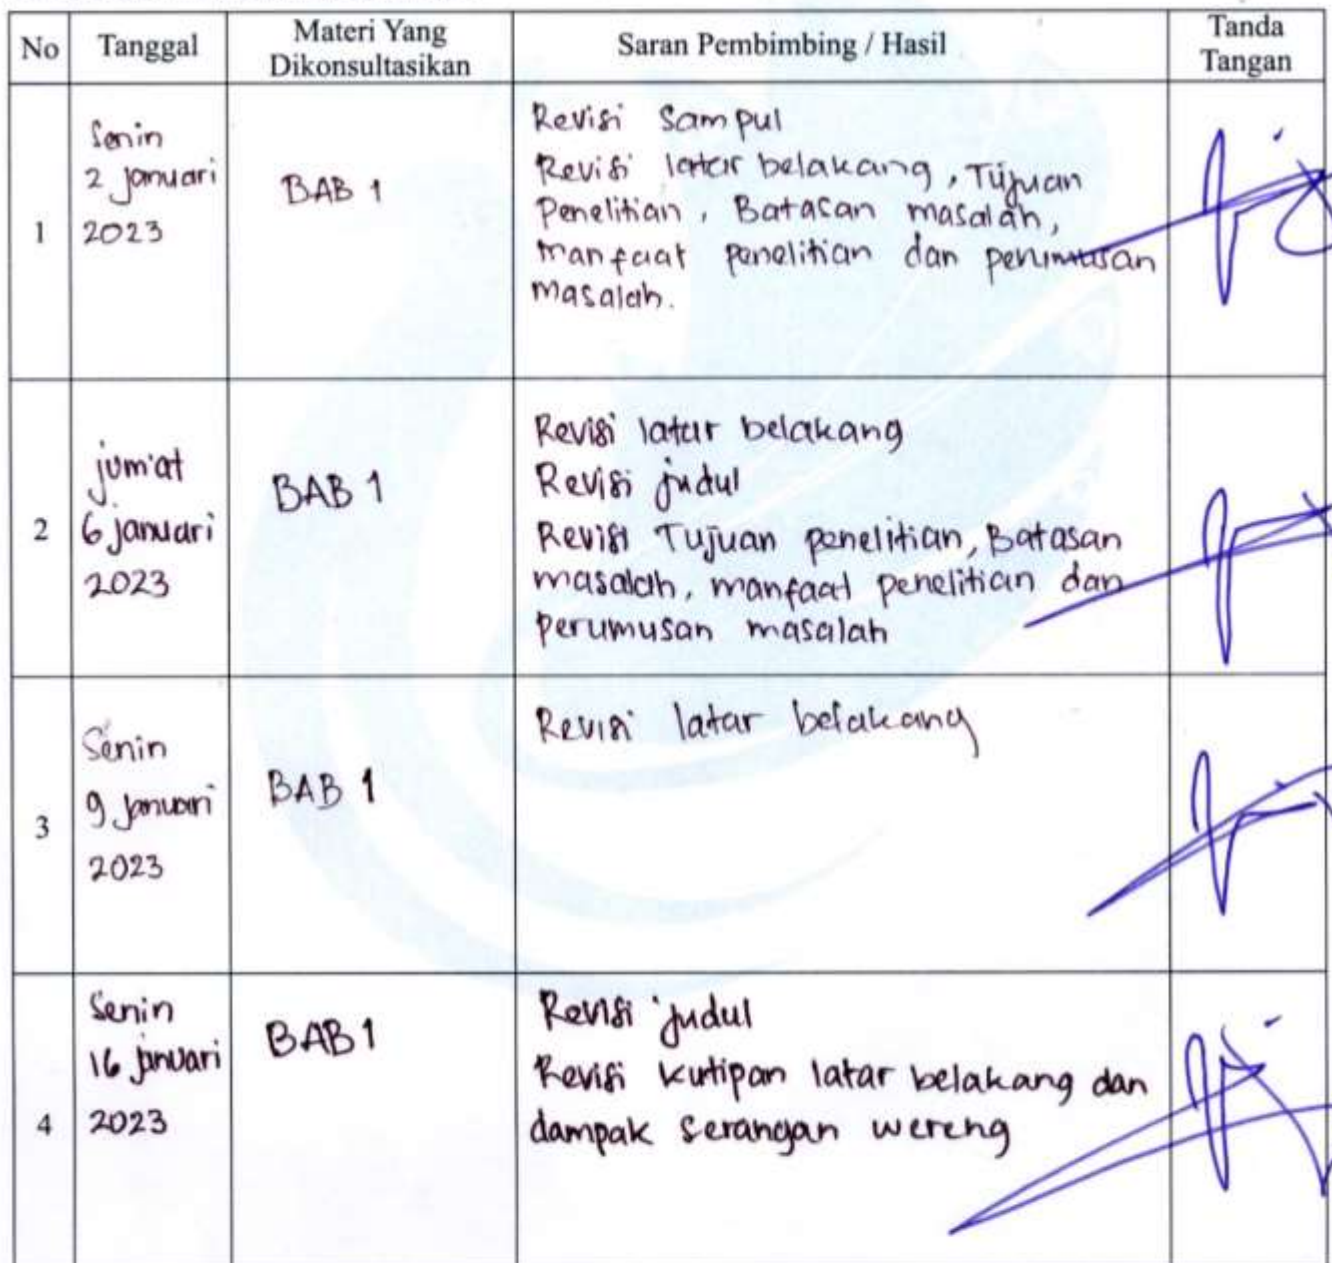 No Tanggal Materi Yang Dikonsultasikan Saran Pembimbing / Hasil Tanda Tangan
1
Senin
2 januari
2023
BAB 1
Revisi Sampul
Revisi latar belakang, Tujuan
Penelitian, Batasan masalah,
manfaat penelitian dan perumusan
masalah.
2
jum'at
6 januari
2023
BAB 1
Revisi latar belakang
Revisi judul
Revisi Tujuan penelitian, Batasan
masalah, manfaat penelitian dan
perumusan masalah
3
Senin
9 januari
2023
BAB 1
Revisi latar belakang
4
Senin
16 januari
2023
BAB 1
Revisi judul
Revisi kutipan latar belakang dan
dampak serangan wereng